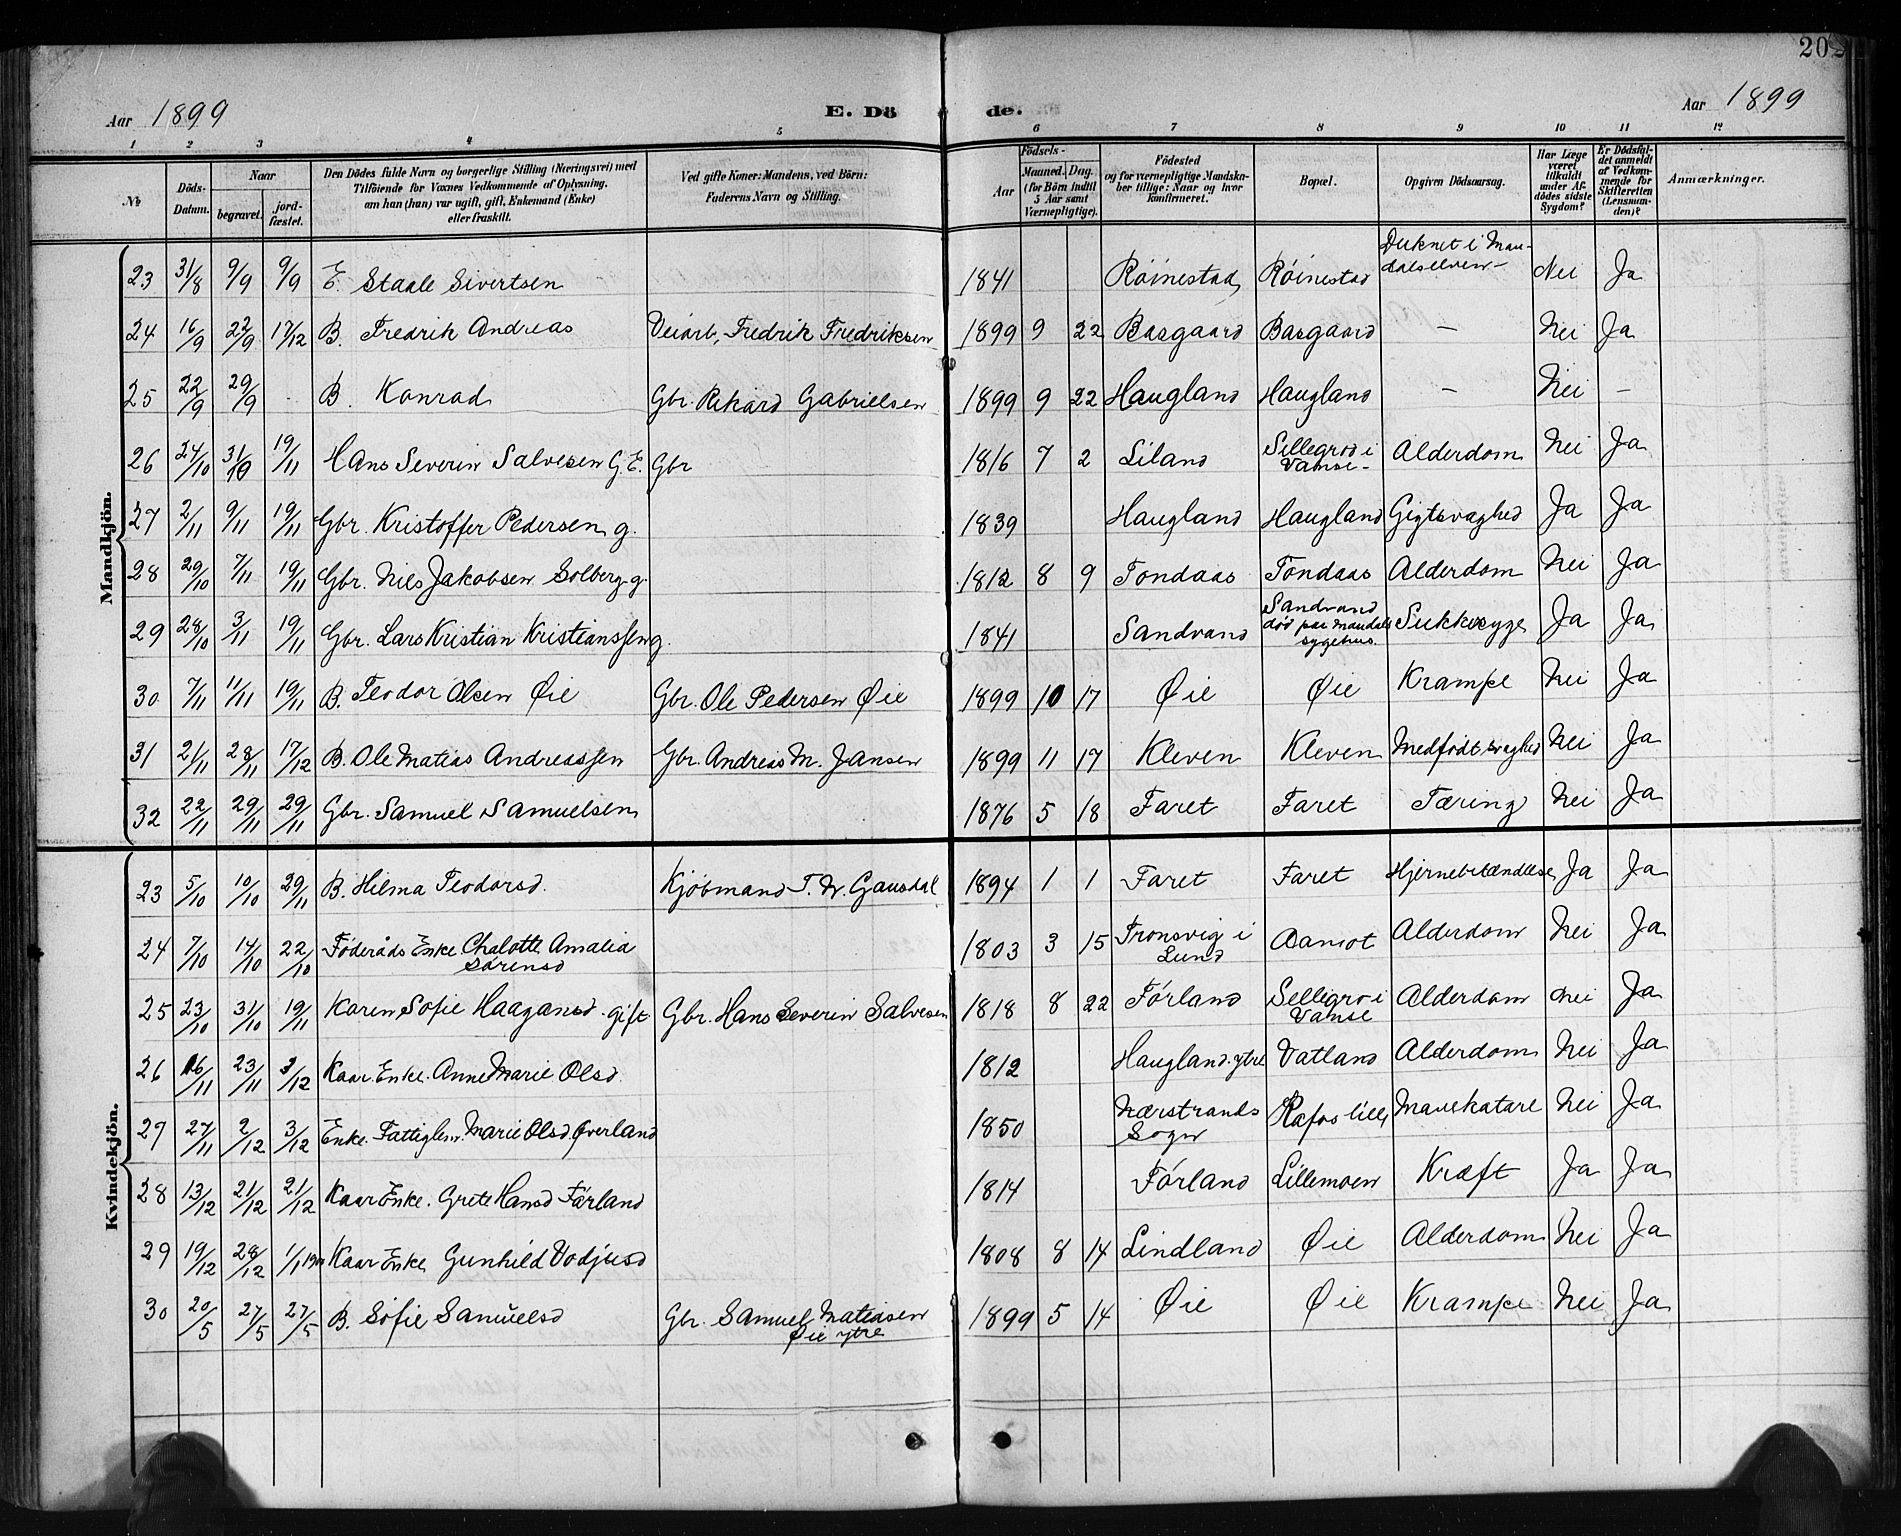 202
Aar 1899 E. Döde. Aar 1899
1 2 3 4 5 6 7 8 9 10 11 12
№ Döds-Datum. Naar begravet. jordfæstet. Den Dödes fulde Navn og borgerlige Stilling (Næringsvei) med Tilföiende for Voxnes Vedkommende af Oplysning, om han (hun) var ugift, gift, Enkemand (Enke) eller fraskilt. Ved gifte Koner: Mandens, ved Börn: Faderens Navn og Stilling. Födsels- Aar Maaned. Dag. (for Börn indtil 5 Aar samt Værnepligtige). Födested og for værnepligtige Mandskaber tillige: Naar og hvor konfirmeret. Bopæl. Opgiven Dödsaarsag. Har Læge været tilkaldt under Afdödes sidste Sygdom? Er Dödsfaldet anmeldt af Vedkommende for Skifteretten (Lensmanden)? Anmærkninger.
Mandkjön.
23 31/8 9/9 9/9 E. Staale Sivertsen 1841 Röinestad Röinestad Druknet i Mandalselven Nei Ja
24 16/9 22/9 17/12 B. Fredrik Andreas Veiarb. Fredrik Fredriksen 1899 9 22 Basgaard Basgaard — Nei Ja
25 22/9 29/9 - B. Konrad Gbr. Rikard Gabrielsen 1899 9 22 Haugland Haugland — Nei —
26 24/10 31/10 19/11 Hans Severin Salvesen G.E. Gbr 1816 7 2 Liland Sellegrod i Vanse Alderdom Nei Ja
27 2/11 9/11 19/11 Gbr. Kristoffer Pedersen g. 1839 Haugland Haugland Gigtsvaghed Ja Ja
28 29/10 7/11 19/11 Gbr. Nils Jakobsen Solberg g. 1812 8 9 Tondaas Tondaas Alderdom Nei Ja
29 28/10 3/11 19/11 Gbr. Lars Kristian Kristianssen g. 1841 Sandvand Sandvand död paa Mandals sygehus. Sukkersyge Ja Ja
30 7/11 11/11 19/11 B. Teodor Olsen Øie Gbr. Ole Pedersen Øie 1899 10 17 Øie Øie Krampe Nei Ja
31 21/11 28/11 17/12 B. Ole Matias Andreassen Gbr. Andreas M. Jansen 1899 11 17 Kleven Kleven Medfödt svaghed Nei Ja
32 22/11 29/11 29/11 Gbr. Samuel Samuelsen 1876 5 18 Faret Faret Tæring Nei Ja
Kvindekjön.
23 5/10 10/10 29/11 B. Hilma Teodorsd. Kjöbmand T. N. Gausdal 1894 1 1 Faret Faret Hjernebetændelse Ja Ja
24 7/10 14/10 22/10 Föderåds Enke Chalotte Amalia Sörensd 1803 3 15 Tronsvig i Lund Aamot Alderdom Nei Ja
25 23/10 31/10 19/11 Karen Sofie Haagansd. gift Gbr. Hans Severin Salvesen 1818 8 22 Förland Sellegro i Vanse Alderdom Nei Ja
26 16/11 23/11 3/12 Kaar Enke. Anne Marie Olsd. 1812 Haugland ytre Vatland Alderdom Nei Ja
27 27/11 2/12 3/12 Enke. Fattiglem. Marie Olsd. Øverland 1850 Nærstrands Sogn Rafos lille Mavekatare Nei Ja
28 13/12 21/12 21/12 Kaar Enke. Grete Hansd Förland 1814 Förland Lillemoen Kræft Ja Ja
29 19/12 28/12 1/1 1900 Kaar Enke Gunhild Vodjusd 1808 8 14 Lindland Øie Alderdom Nei Ja
30 20/5 27/5 27/5 B. Sofie Samuelsd Gbr. Samuel Matiasen Øie ytre 1899 5 14 Øie Øie Krampe Nei Ja